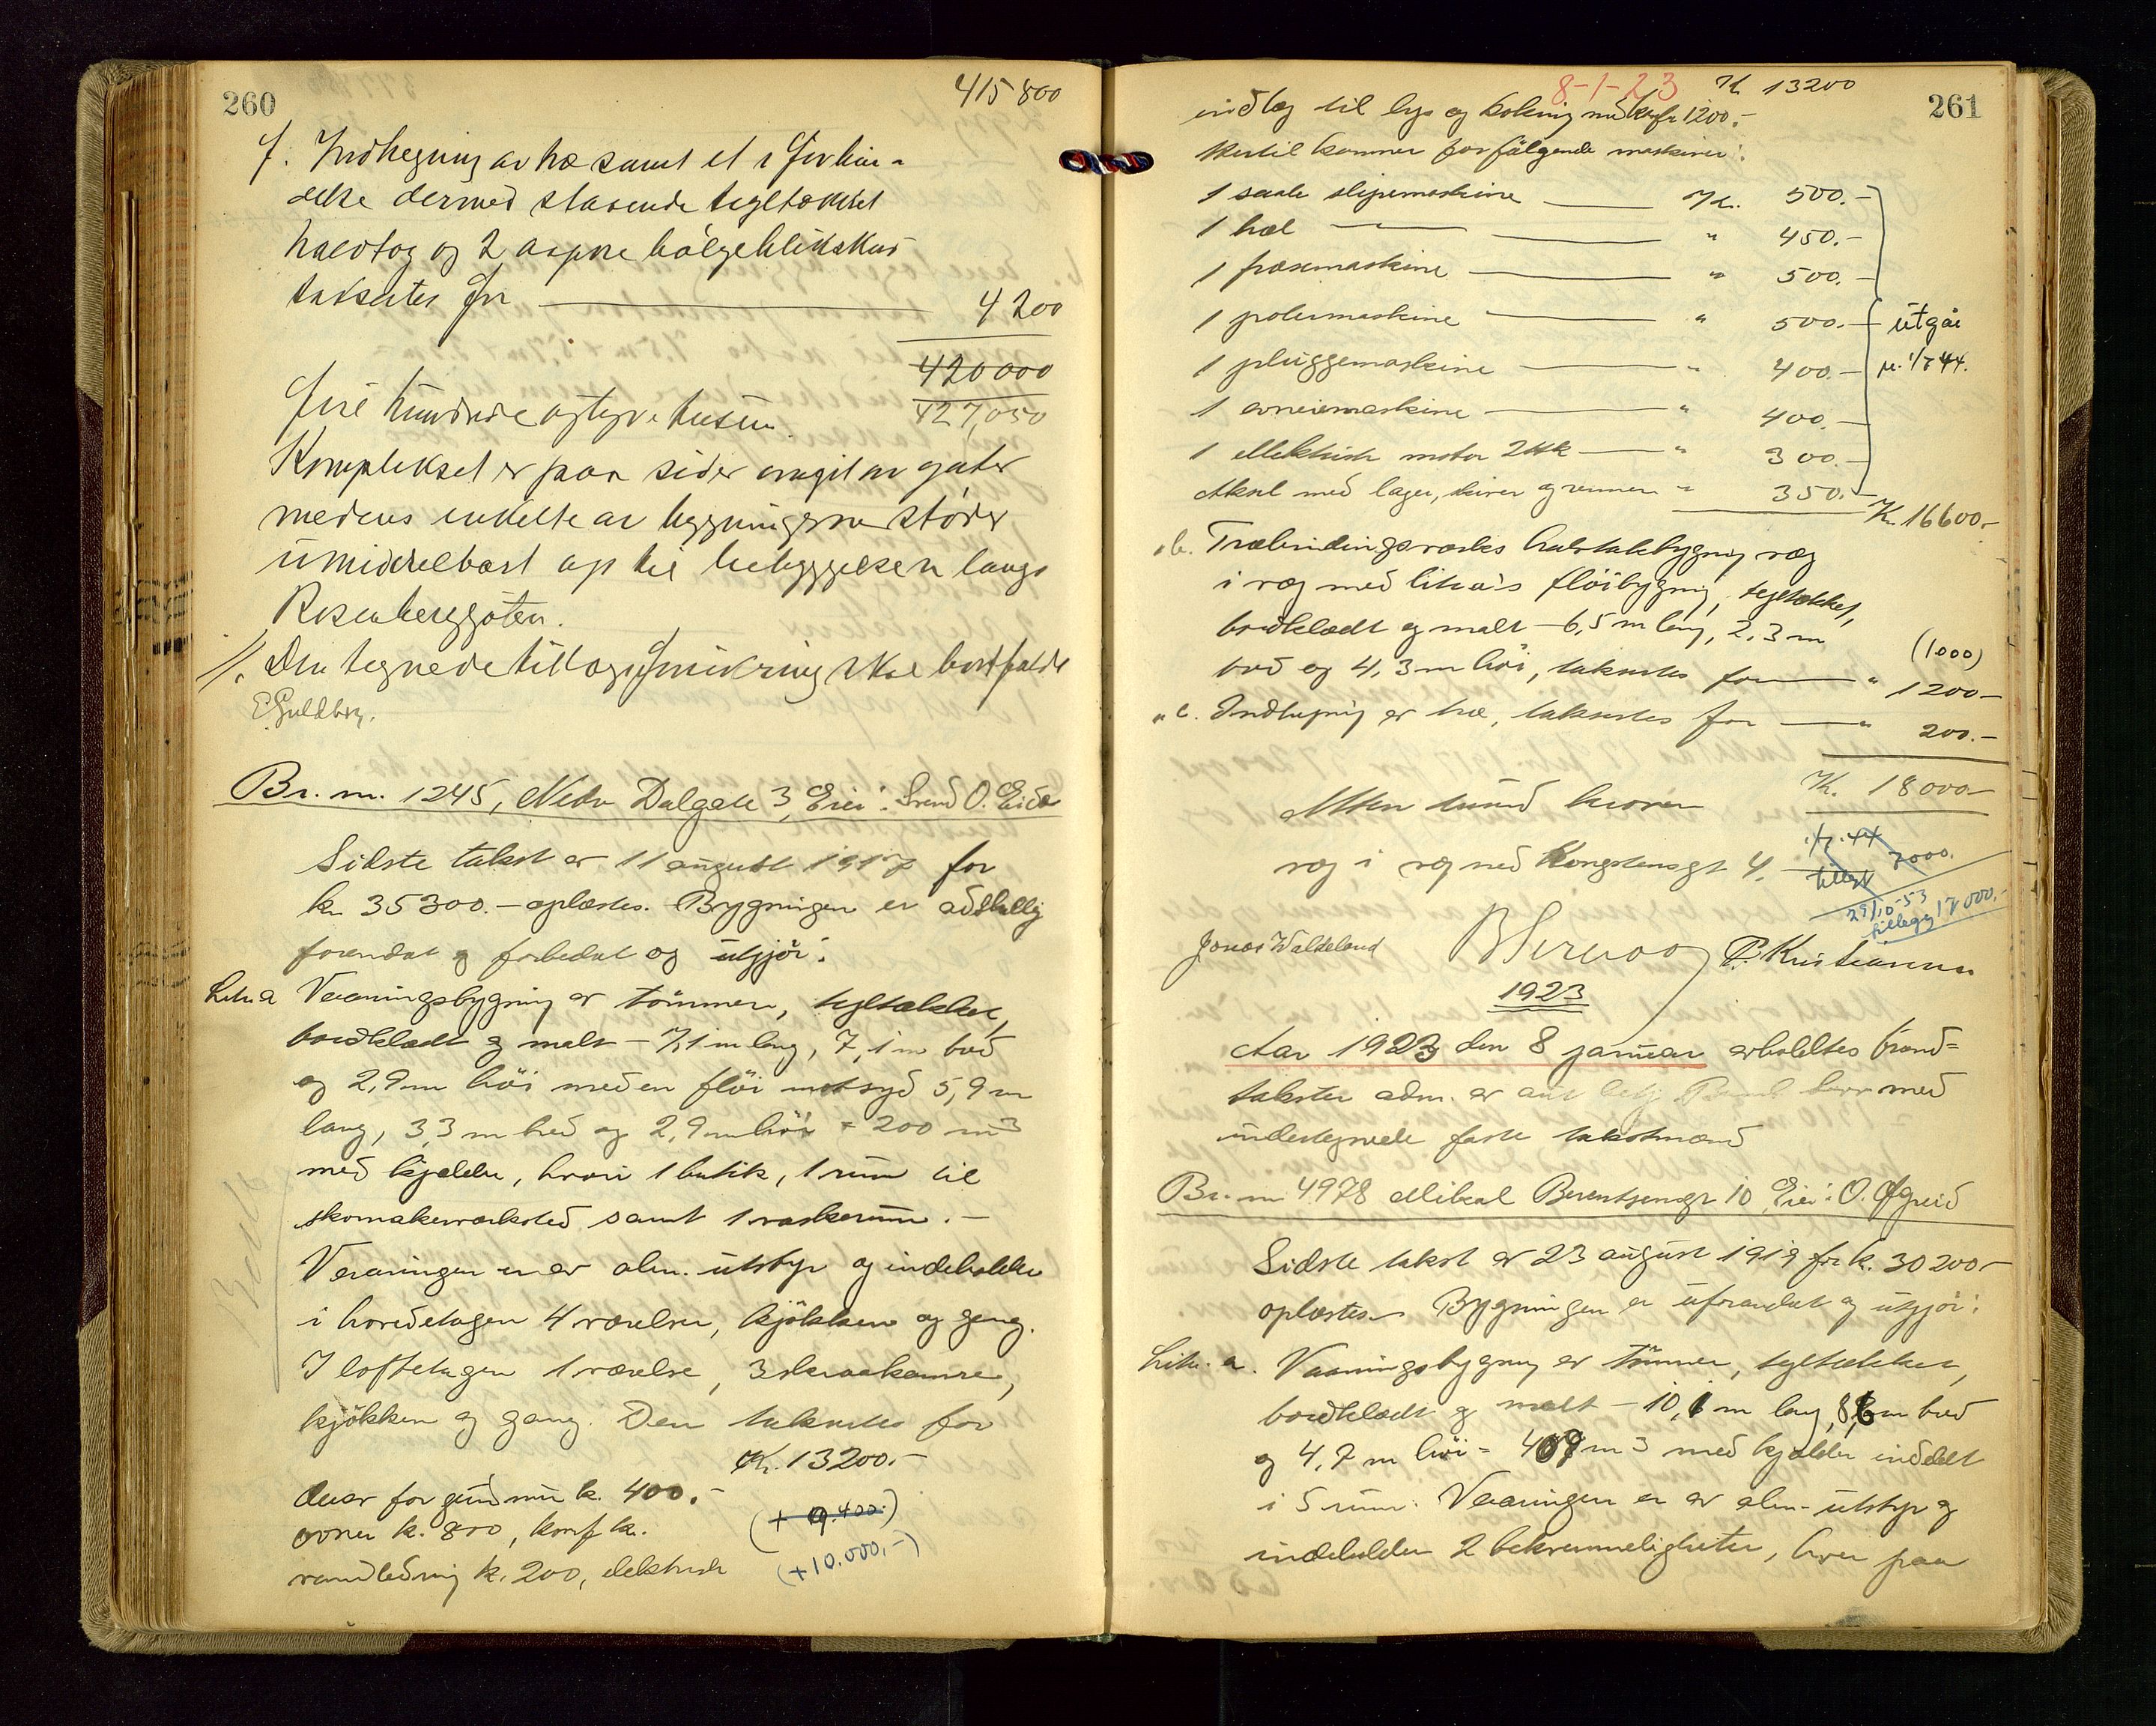 260
415 800
f. Indhegning av træ samt et i forbin-
delse dermed staaende tegltækket
halvtag og 2 aapne bölgeblikskur
takseres for 4200
420 000
fire hundrede og tyve tusen. 427,050
Komplekset er paa sider omgit av gater
medens enkelte av bygningerne stöder
umiddelbart op til bebyggelsen langs
Rosenberggaten.
1/. Den tegnede tillægsforsikring skal bortfalde
E. Guldbrg.
Br. nr. 1245, Nedr Dalgate 3, Eier: Svend O. Eide
Sidste takst av 11 august 1917 for
kr 35300.- oplæstes. Bygningen er adskillig
forandret og forbedret og utgjör:
Litr. a Vaaningsbygning av tömmer, tegltækket,
bordklædt og malt - 7,1 m lang, 7,1 m bred
og 2,9 m höi med en flöi mot syd 5,9 m
lang, 3,3 m bred og 2,9 m höi = 200 m3
med kjælder, hvori 1 butik, 1 rum til
skomakerverksted samt 1 vaskerum.-
Vaaningen er av alm. utstyr og indeholder
i hovedetagen 4 værelser, kjökken og gang.
I loftetagen 1 værelse, 3 skraakamre,
kjökken og gang. Den takseres for
Kr. 13200.-
derav for grundmur k. 400.-
ovner k. 800, komf. k.
vandledning k. 200, elektrisk
(+ 9.400.)
(+10.000,-)
261
8-1-23 Kr. 13200
indlæg til lys og kokning med kr 1200.-
Hertil kommer for fölgende maskiner:
1 saale slipemaskine Kr. 500.-
1 hæl " 450.-
1 fræsemaskine " 500.-
1 polermaskine " 500.- utgår
1 pluggemaskine " 400.- pr. 1/7 44.
1 maskine " 400.-
1 elektrisk motor 2 Hk " 300.-
Aksel med lager, skiver og remmer " 350.-
Kr. 16600.-
" b. Træbindingsverks halvtakbygning væg
i væg med litra a's flöibygning, tegltækket,
bordklædt og malt - 6,5 m lang, 2,3 m
(1000)
bred og 4,3 m höi, takseres for " 1200.-
" c. Indhegning av træ, takseres for " 200.-
Kr. 18000.-
Atten tusind kroner
væg i væg med Kongstensgt 4.
1/7.44
tillegg 7000.
29/10-53
tillegg 17000.-
Jonas Wålteland P. Kristiansen
1923
Aar 1923 den 8 januar avholdtes brand-
takster adm. av med
undertegnede faste takstmænd
Br. nr 4978 Mikal Berentsensgt 10, Eier: O. Øgreid
Sidste takst av 23 august 1919 for k. 30200.-
oplæstes. Bygningen er uforandret og utgjör:
Litr. a. Vaaningsbygning av tömmer, tegltækket,
bordklædt og malt - 10,1 m lang, 8,6 m bred
og 4,7 m höi = 409 m3 med kjælder inddelt
i 5 rum. Vaaningen er av alm. utstyr og
indeholder 2 bekvemmeligheter, hver paa